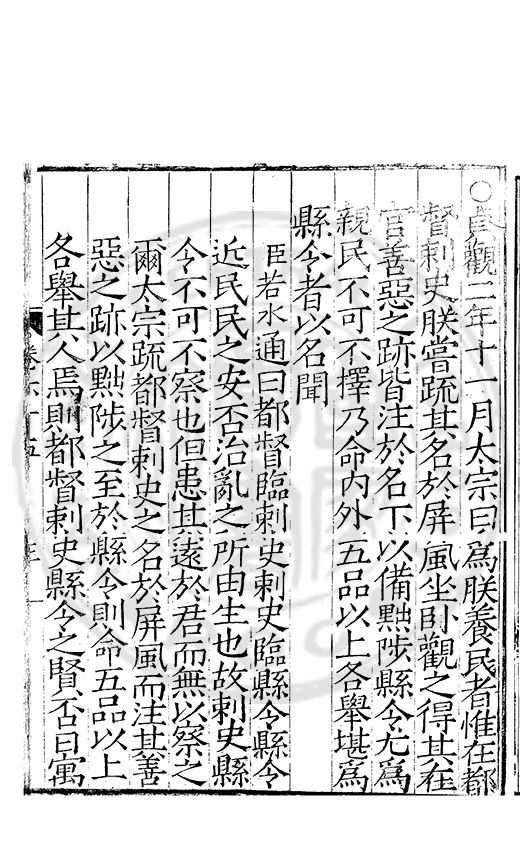 ○貞觀二年十一月太宗曰爲朕養民者惟在都
督刺史朕嘗疏其名於屏風坐卧觀之得其在
官善惡之跡皆注於名下以備黜陟縣令尤爲
親民不可不擇乃命内外五品以上各舉堪爲
縣令者以名聞
臣若水通曰都督臨刺史刺史臨縣令縣令
近民民之安否治亂之所由生也故刺史縣
令不可不察也但患其遠於君而無以察之
爾太宗疏都督刺史之名於屏風而注其善
惡之跡以黜陟之至於縣令則命五品以上
各舉其人焉則都督刺史縣令之賢否曰寓
卷六十五